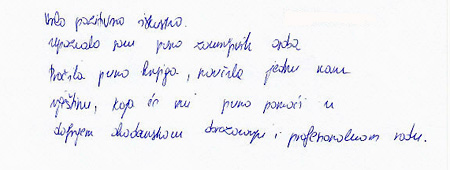 Vrlo pozitivno iskustvo.
Upoznala sam puno zanimljivih osoba
pročitala puno knjiga, naučila jednu novu
vještinu, koja će mi puno pomoći u
daljnjem akademskom obrazovanju i profesionalnom radu.